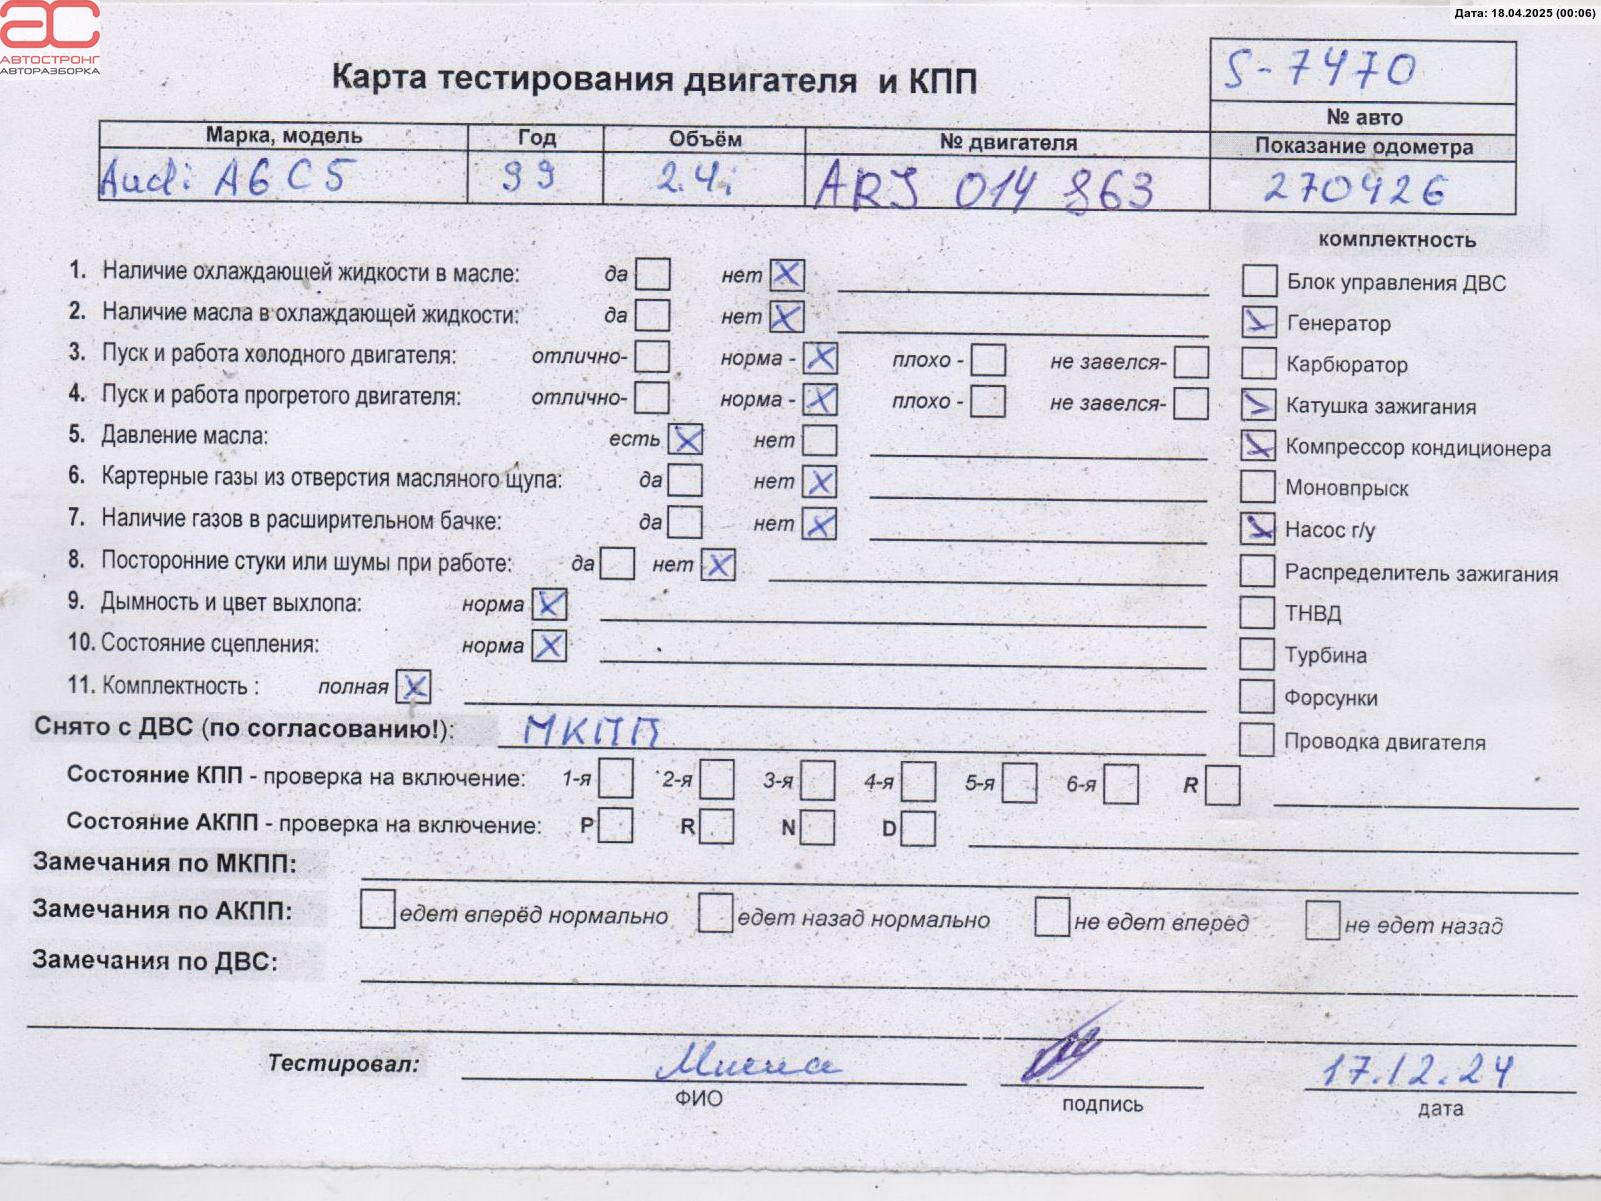 Дата: 18.04.2025 (00:06)
АС
АВТОСТРОНГ
АВТОРАЗБОРКА
Карта тестирования двигателя и КПП
S-7470
№ авто
Марка, модель Год Объём № двигателя Показание одометра
Audi A6 C5 99 2.4i ARJ 014 863 270426
комплектность
1. Наличие охлаждающей жидкости в масле: да нет X
Блок управления ДВС
2. Наличие масла в охлаждающей жидкости: да нет X
Генератор
3. Пуск и работа холодного двигателя: отлично- норма - X плохо - не завелся-
Карбюратор
4. Пуск и работа прогретого двигателя: отлично- норма - X плохо - не завелся-
Катушка зажигания
5. Давление масла: есть X нет
Компрессор кондиционера
6. Картерные газы из отверстия масляного щупа: да нет X
Моновпрыск
7. Наличие газов в расширительном бачке: да нет X
Насос г/у
8. Посторонние стуки или шумы при работе: да нет X
Распределитель зажигания
9. Дымность и цвет выхлопа: норма X
ТНВД
10. Состояние сцепления: норма X
Турбина
11. Комплектность : полная X
Форсунки
Снято с ДВС (по согласованию!): МКПП
Проводка двигателя
Состояние КПП - проверка на включение: 1-я 2-я 3-я 4-я 5-я 6-я R
Состояние АКПП - проверка на включение: P R N D
Замечания по МКПП:
Замечания по АКПП: едет вперёд нормально едет назад нормально не едет вперед не едет назад
Замечания по ДВС:
Тестировал: 17.12.24
ФИО подпись дата